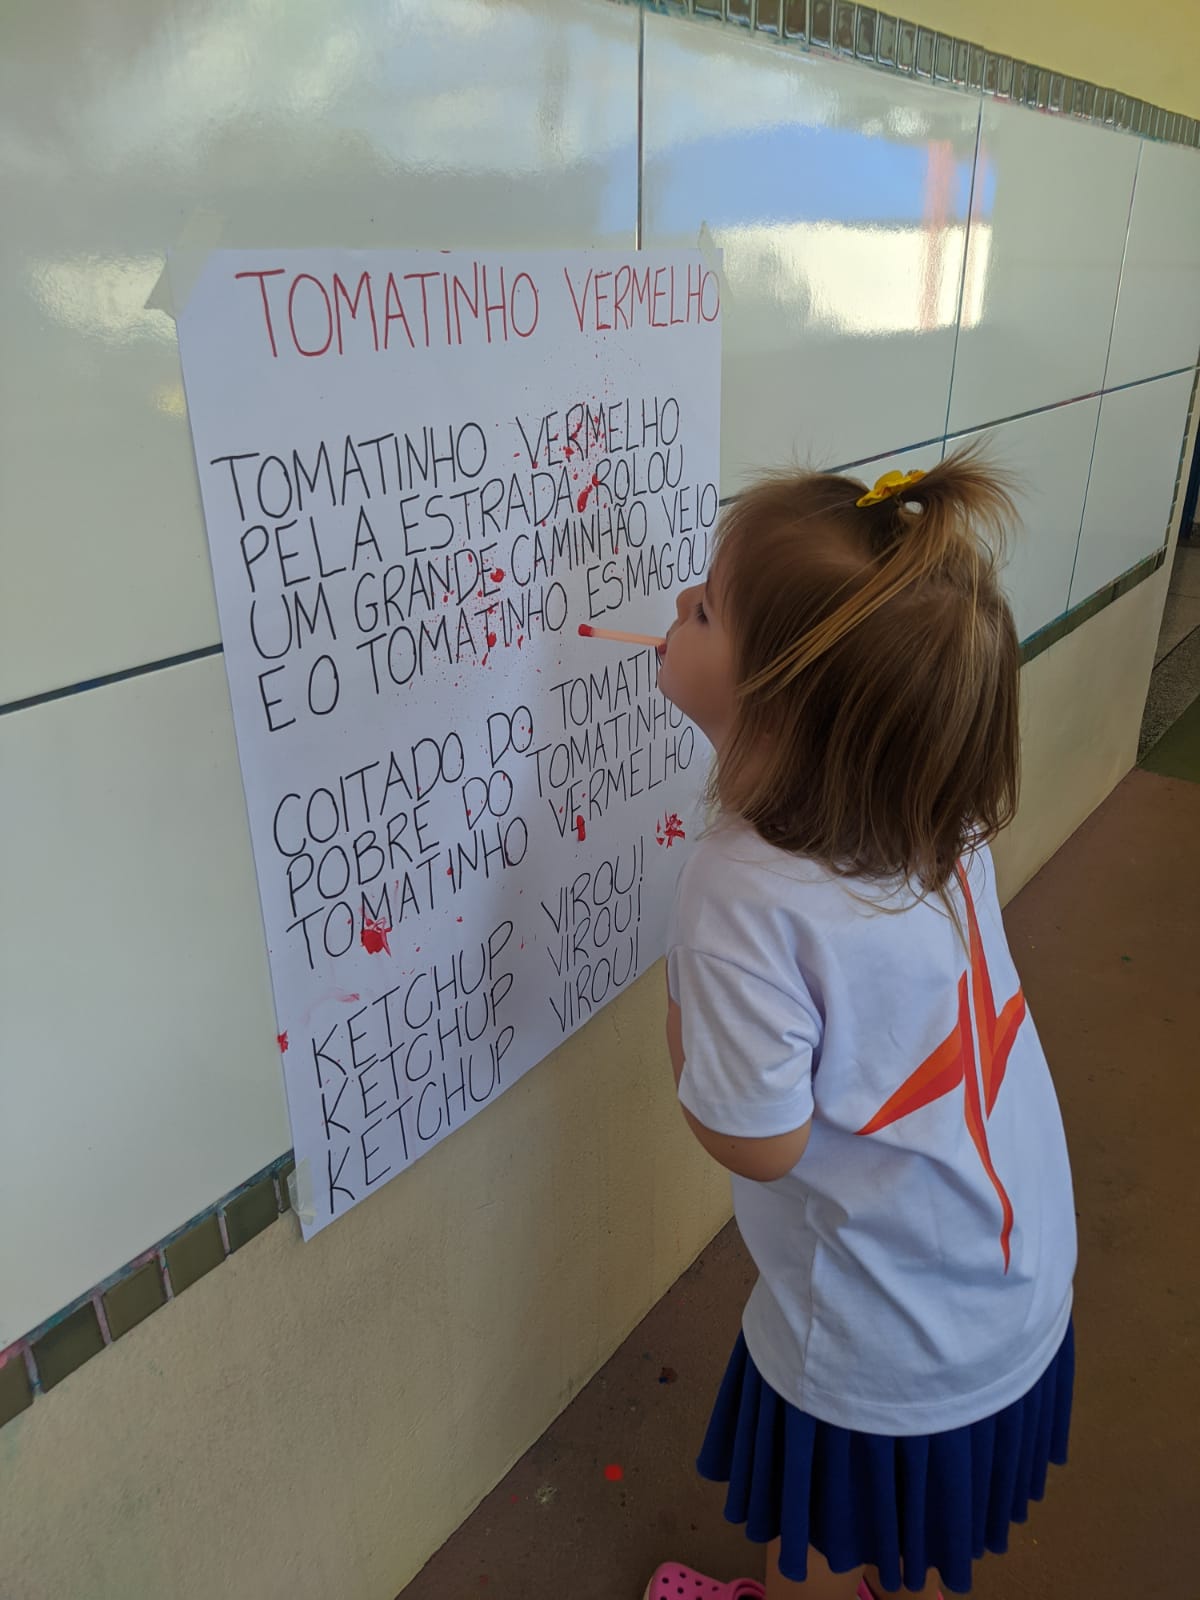 TOMATINHO VERMELHO
TOMATINHO VERMELHO
PELA ESTRADA ROLOU
UM GRANDE CAMINHÃO VEIO
E O TOMATINHO ESMAGOU
COITADO DO TOMATIN
POBRE DO TOMATINHO
TOMATINHO VERMELHO
KETCHUP VIROU!
KETCHUP VIROU!
KETCHUP VIROU!